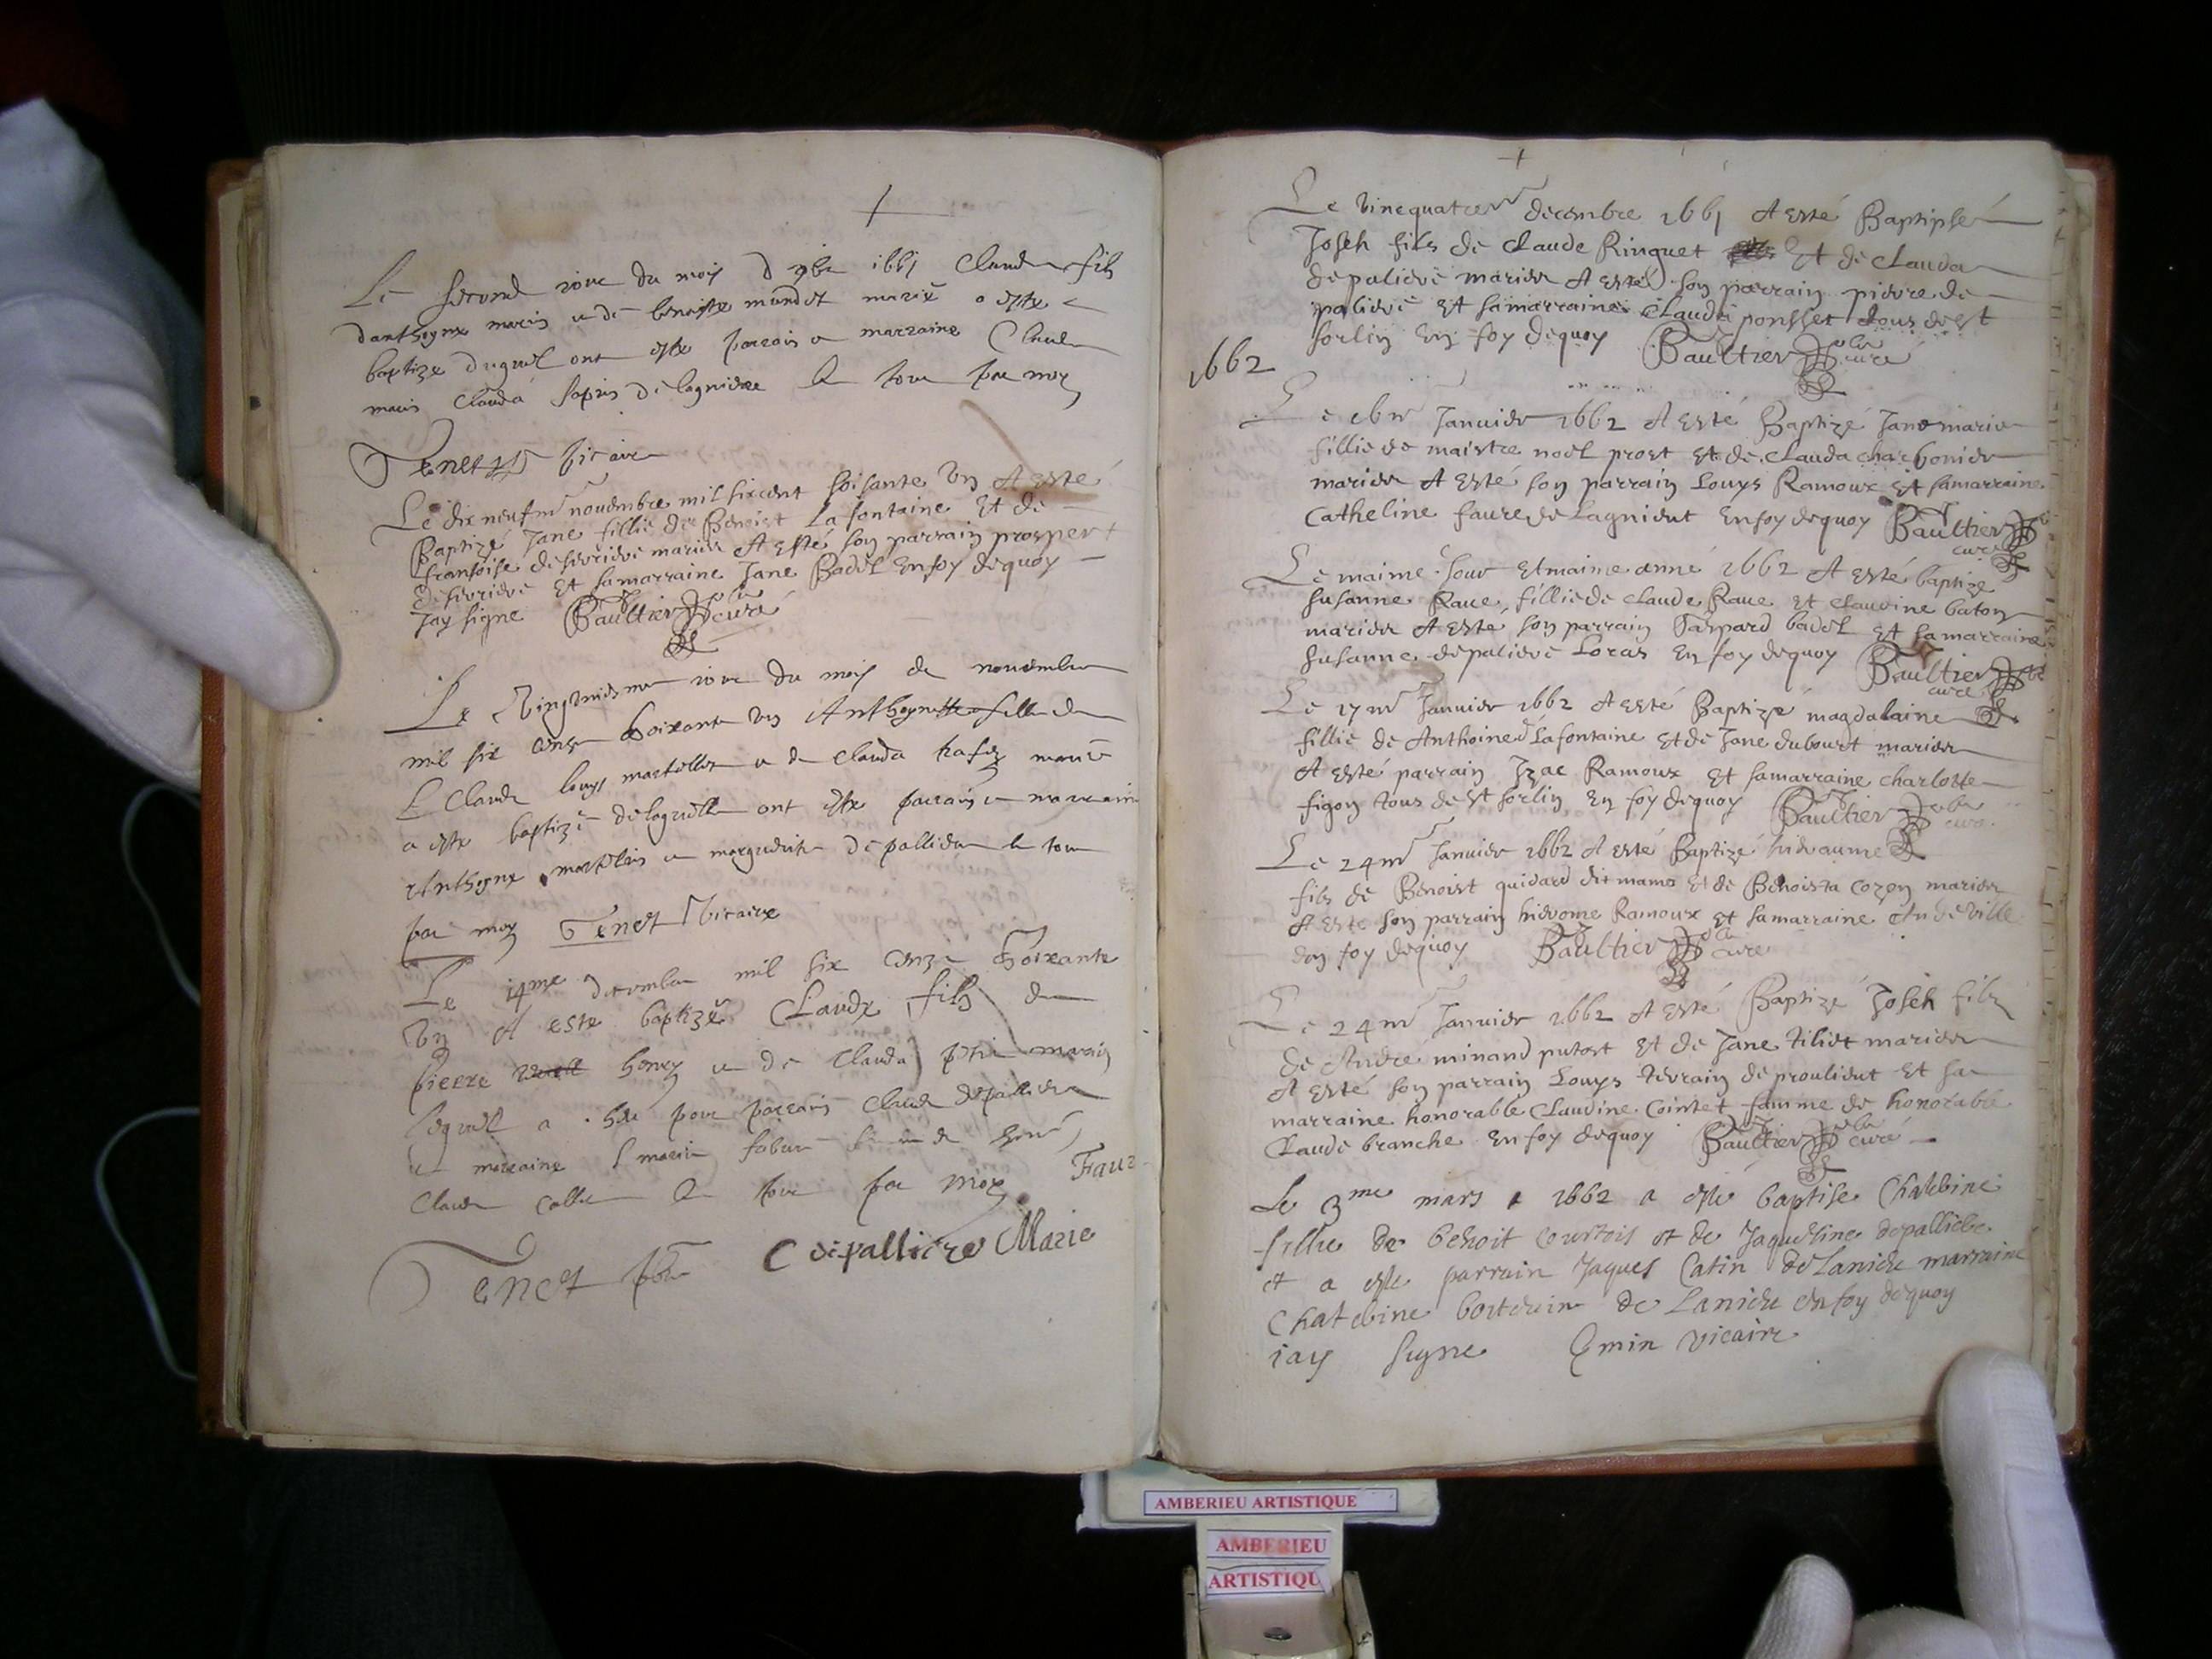 Le second jour du mois d 9bre 1661 Claude fils
danthoyne maris et de benoiste mandet marié a este
baptize duquel ont este parrain et marraine Claude
maris Clauda de lagnieu le tout par moy
Tenet vicaire
Le dix neufm novembre mil sixcent soisante un A esté
Baptizé Jane fillie de Benoist Lafontaine Et de
fransoise desevriere maries A esté son parrain prosper
desevriere Et samarraine Jane Badel En foy dequoy
Jay signe Baultier curé
Le vingtmiesme jour du mois de novembre
mil six cens soixante un Anthoynette fille de
Claude louys martellet et de Clauda marié
a este baptizé de laquelle ont este parrain et marraine
Anthoyne martelin et marguerite depalliere le tout
par moy Tenet Vicaire
Le 14me decembre mil six cens soixante
un A este baptizé Claude fils de
Pierre honry et de Clauda maries
lequel a heu pour parrain Claude depalliere
et marraine marie
Claude le tout par moy Faur
Tenet C depalliere Marie
+
Le vinequatrem decembre 1661 A esté Baptipsé
Joseh fils de Claude Ringuet Et de Clauda
depaliere maries A esté son parrain pierre de
paliere Et samarraine Clauda ponsset tous de st
sorlin En foy dequoy Baultier curé
1662
Le 16m Janvier 1662 A esté Baptizé Janemarie
fillie de maistre noel prost Et de Clauda charbonier
maries A esté son parrain Louys Ramoux Et samarraine
Catheline faure de Lagnieut En foy dequoy Baultier
curé
Le maime Jour Et maime anné 1662 A esté baptize
susanne Raue fillie de Claude Raue Et Claudine baton
maries A esté son parrain Gaspard badel Et samarraine
susanne depaliere Loras En foy dequoy Baultier
curé
Le 17m Janvier 1662 A esté Baptizé magdalaine
fillie de Anthoine Lafontaine Et de Jane dubourt maries
A esté parrain Izac Ramoux Et samarraine charlotte
figon tous de st sorlin En foy dequoy Baultier
curé
Le 24m Janvier 1662 A esté Baptizé
fils de Benoist quidard dit mamo Et de Benoista cozon maries
A esté son parrain hierome Ramoux Et samarraine
En foy dequoy Baultier curé
Le 24m Janvier 1662 A esté Baptizé Joseh fils
de André minand putost Et de Jane tiliet maries
A esté son parrain Louys terrain de proulieut Et sa
marraine honorable Claudine Cointet famme de honorable
Claude branche En foy dequoy Baultier curé
Le 3me mars 1662 a este baptise Chatebine
fillie de benoit courtois et de Jaqueline depalliere
et a este parrain Jaques Catin de Laniere marraine
Chatebine de Laniere en foy dequoy
iay signe Emin vicaire
AMBERIEU ARTISTIQUE
AMBERIEU
ARTISTIQU